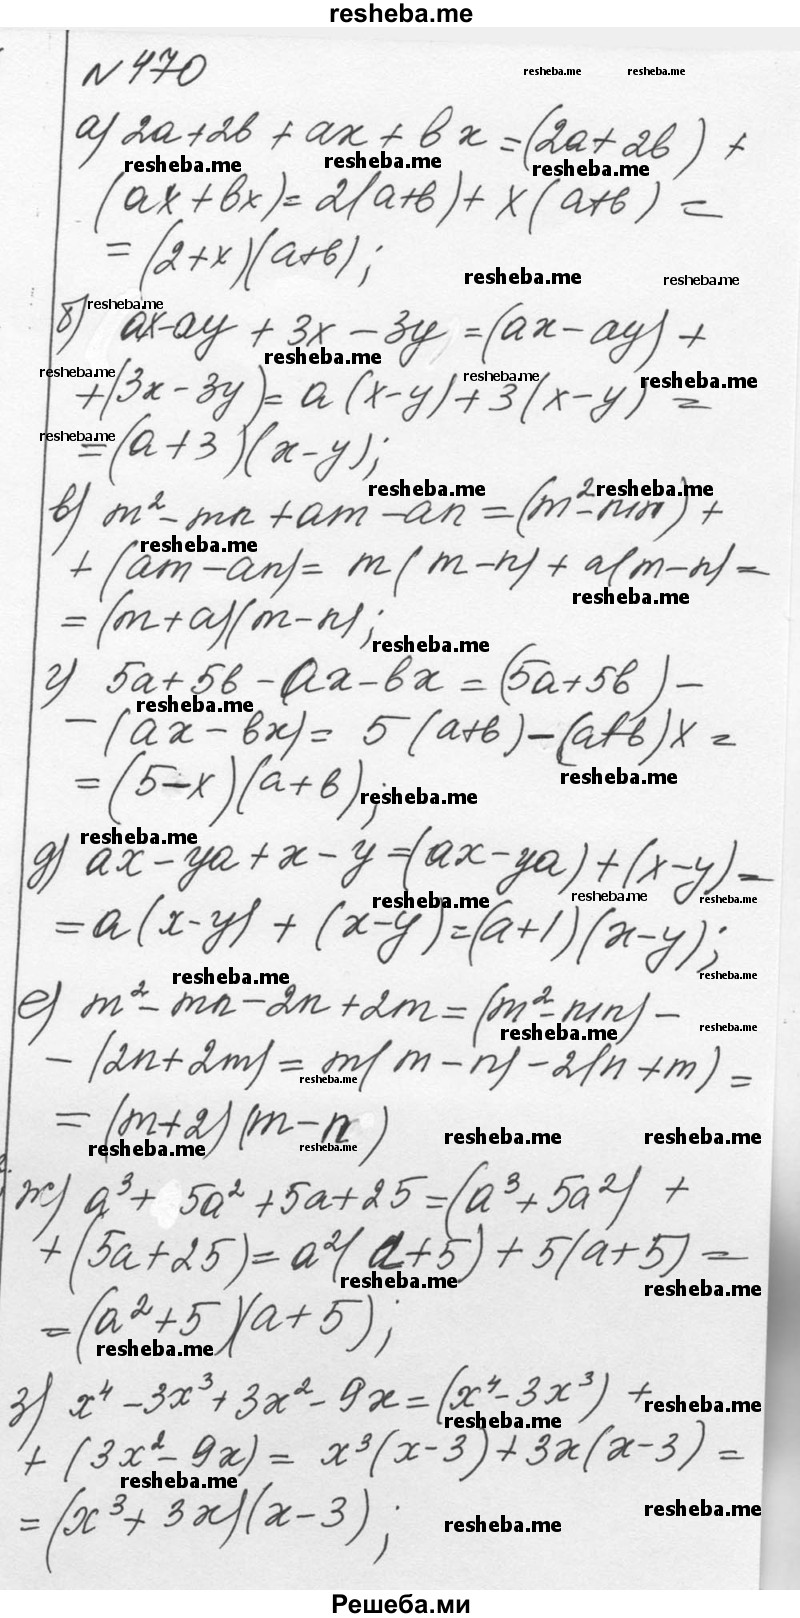 resheba.me
№ 470
resheba.me resheba.me
а) 2a+2b + ax + bx = (2a+2b) +
resheba.me resheba.me resheba.me
(ax+bx) = 2(a+b) + x(a+b) =
= (2+x)(a+b);
resheba.me resheba.me
resheba.me
б) ax-ay + 3x - 3y = (ax - ay) +
resheba.me
resheba.me resheba.me resheba.me
+ (3x - 3y) = a(x-y) + 3(x-y) =
resheba.me
= (a+3)(x-y);
resheba.me resheba.me
в) m² - mn + am - an = (m² - mn) +
resheba.me
+ (am - an) = m(m-n) + a(m-n) =
resheba.me
= (m+a)(m-n);
resheba.me
г) 5a+5b - ax - bx = (5a+5b) -
resheba.me
- (ax - bx) = 5(a+b) - (a+b)x =
resheba.me
= (5-x)(a+b);
resheba.me
resheba.me
д) ax - ya + x - y = (ax - ya) + (x-y) =
resheba.me resheba.me resheba.me
= a(x-y) + (x-y) = (a+1)(x-y);
resheba.me resheba.me
е) m² - mn - 2n + 2m = (m² - mn) -
resheba.me resheba.me
- (2n+2m) = m(m-n) - 2(n+m) =
resheba.me
= (m+2)(m-n)
resheba.me resheba.me resheba.me resheba.me
ж) a³ + 5a² + 5a + 25 = (a³ + 5a²) +
+ (5a+25) = a²(a+5) + 5(a+5) =
resheba.me resheba.me
= (a²+5)(a+5);
resheba.me
з) x⁴ - 3x³ + 3x² - 9x = (x⁴ - 3x³) +
resheba.me resheba.me
+ (3x² - 9x) = x³(x-3) + 3x(x-3) =
resheba.me
= (x³ + 3x)(x-3);
resheba.me resheba.me
Решеба.ми